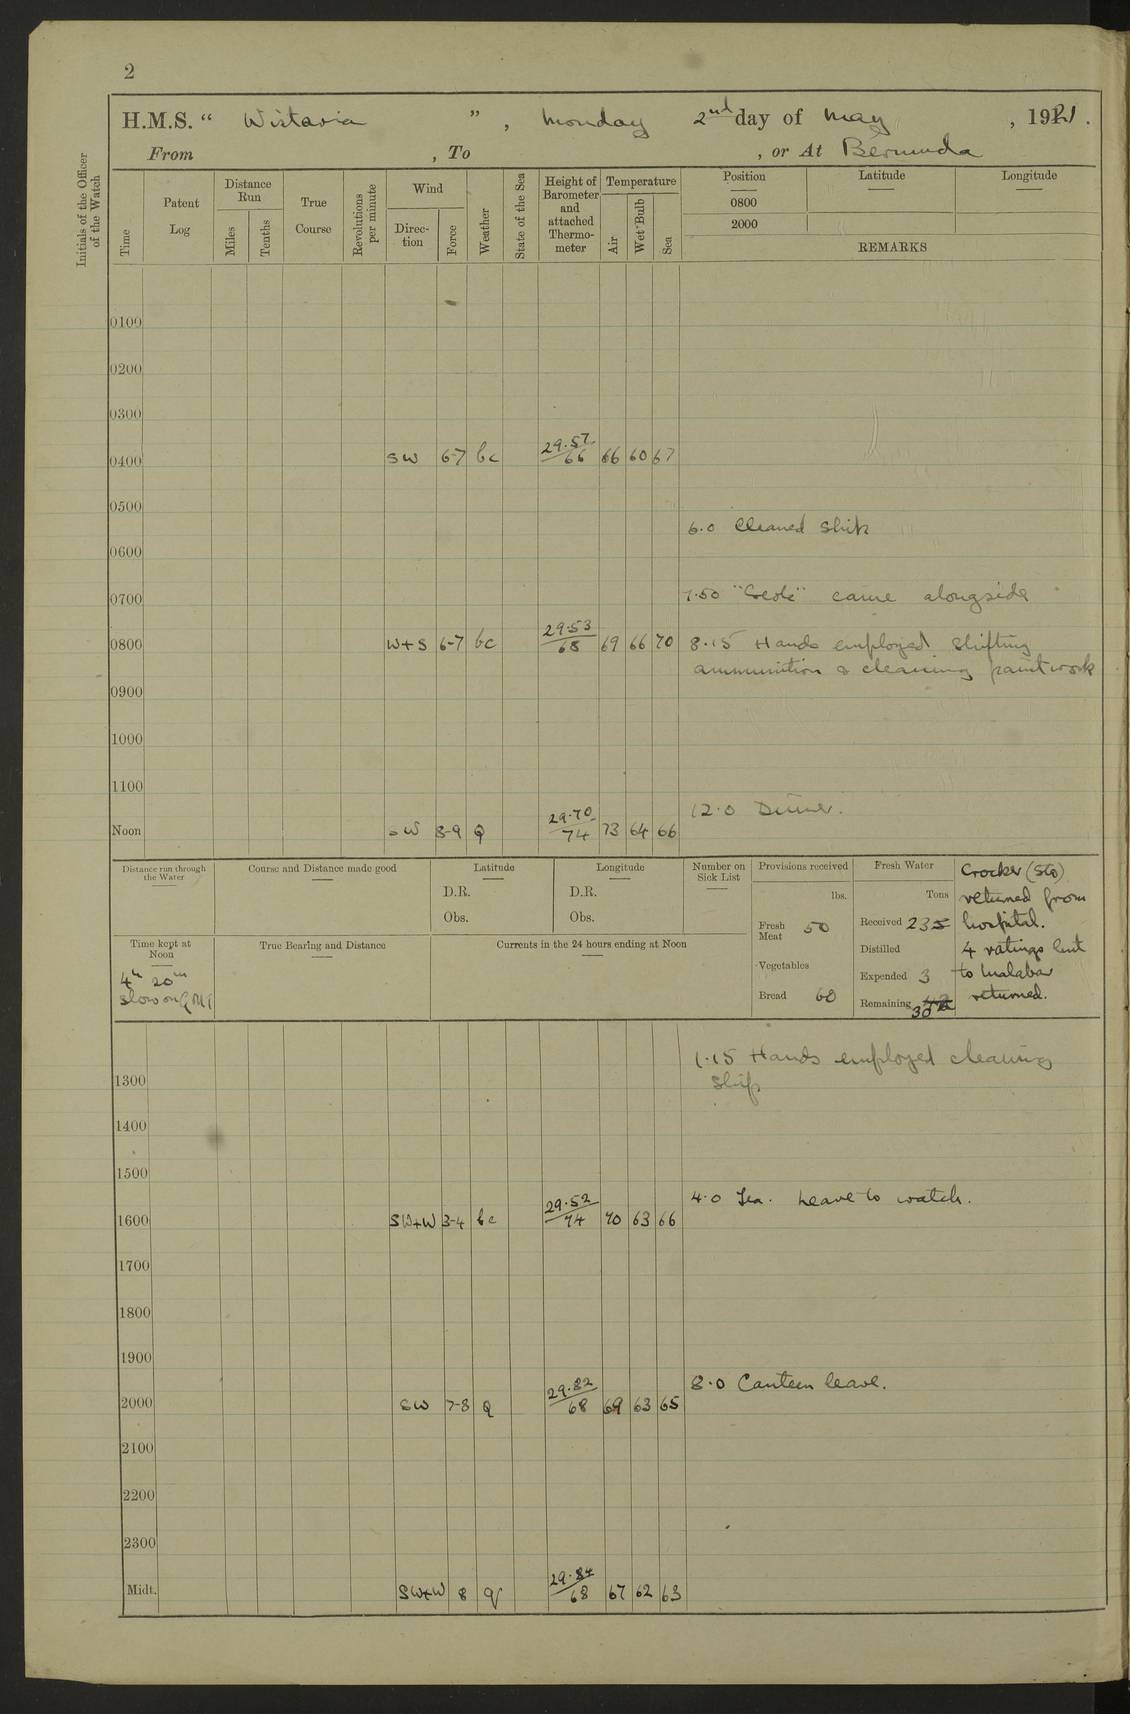 2
H.M.S. “ Wistaria ” , Monday 2nd day of May , 1921.
From , To , or At Bermuda
Initials of the Officer of the Watch
Time
Patent Log
Distance Run
Miles
Tenths
True Course
Revolutions per minute
Wind
Direc-tion
Force
Weather
State of the Sea
Height of Barometer and attached Thermo-meter
Temperature
Air
Wet Bulb
Sea
Position Latitude Longitude
0800
2000
REMARKS
0100
0200
0300
0400 SW 6-7 bc 29.57 66 66 60 67
0500
6.0 Cleaned Ship
0600
0700 7.50 came alongside
0800 W+S 6-7 bc 29.53 68 69 66 70 8.15 Hands employed shifting
ammunition & cleaning paintwork
0900
1000
1100
12.0 Dinner.
Noon SW 8-9 Q 29.70 74 73 64 66
Distance run through the Water
Course and Distance made good
Latitude
D.R.
Obs.
Longitude
D.R.
Obs.
Number on Sick List
Provisions received
lbs.
Fresh Meat 50
Vegetables
Bread 60
Fresh Water
Tons
Received 235
Distilled
Expended 3
Remaining 30
Crocker (Sto)
returned from
hospital.
4 ratings lent
to Malabar
returned.
Time kept at Noon
4h 20m
slow on GMT
True Bearing and Distance
Currents in the 24 hours ending at Noon
1.15 Hands employed cleaning
1300 ship
1400
1500
4.0 Tea. Leave to watch.
1600 SW+W 3-4 bc 29.52 74 70 63 66
1700
1800
1900
8.0 Canteen leave.
2000 SW 7-8 Q 29.82 68 69 63 65
2100
2200
2300
Midt. SW+W 8 q 29.84 68 67 62 63